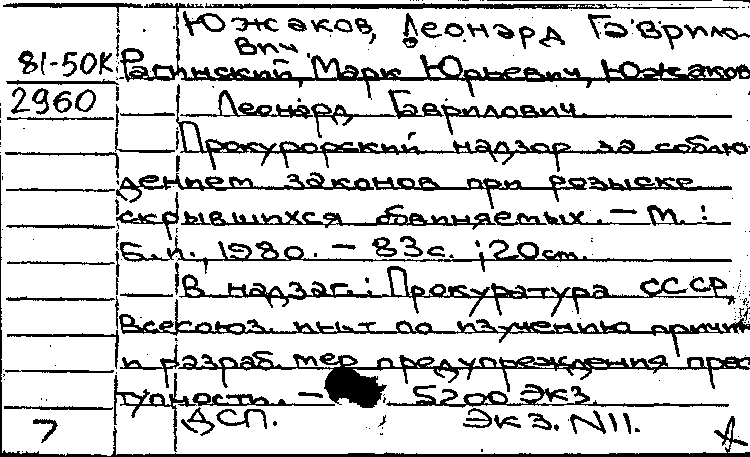 Южаков, Леонард Гаврило-
вич
81-50К Рагинский, Марк Юрьевич, Южаков,
2960 Леонард Гаврилович.
Прокурорский надзор за соблю-
дением законов при розыске
скрывшихся обвиняемых. — М.:
Б.и., 1980. — 83с. ; 20см.
В надзаг.: Прокуратура СССР,
Всесоюз. ин-т по изучению причин
и разраб. мер предупреждения прес-
тупности. — 5200 экз.
ДСП. Экз. N11.
7